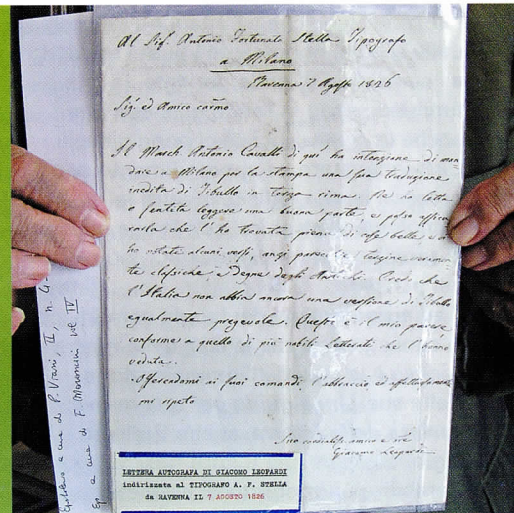 Al Sig. Antonio Fortunato Stella Tipografo
a Milano
Ravenna 7 Agosto 1826
Sig. ed Amico carmo
Il March Antonio Cavalli di qui ha intenzione di man-
dare a Milano per la stampa una sua traduzione
inedita di Tibullo in terza rima. Ne ho letta
o sentita leggere una buona parte, e posso assicu-
rarla che l'ho trovata piena di cose belle, e ci
ho notate alcuni versi, anzi parecchie terzine veramen-
te classiche, e degne degli Antichi. Credo che
l'Italia non abbia ancora una versione di Tibullo
egualmente pregevole. Questo è il mio parere
conforme a quello di più nobili Letterati che l'hanno
veduta.
Offerendomi ai suoi comandi, l'abbraccio ed affettuosamente
mi ripeto
Suo amico e
Giacomo Leopardi
LETTERA AUTOGRAFA DI GIACOMO LEOPARDI
indirizzata al TIPOGRAFO A. F. STELLA
da RAVENNA IL 7 AGOSTO 1826
a cura di P. Viani, II, n. 4
a cura di F. Moroncini vol IV